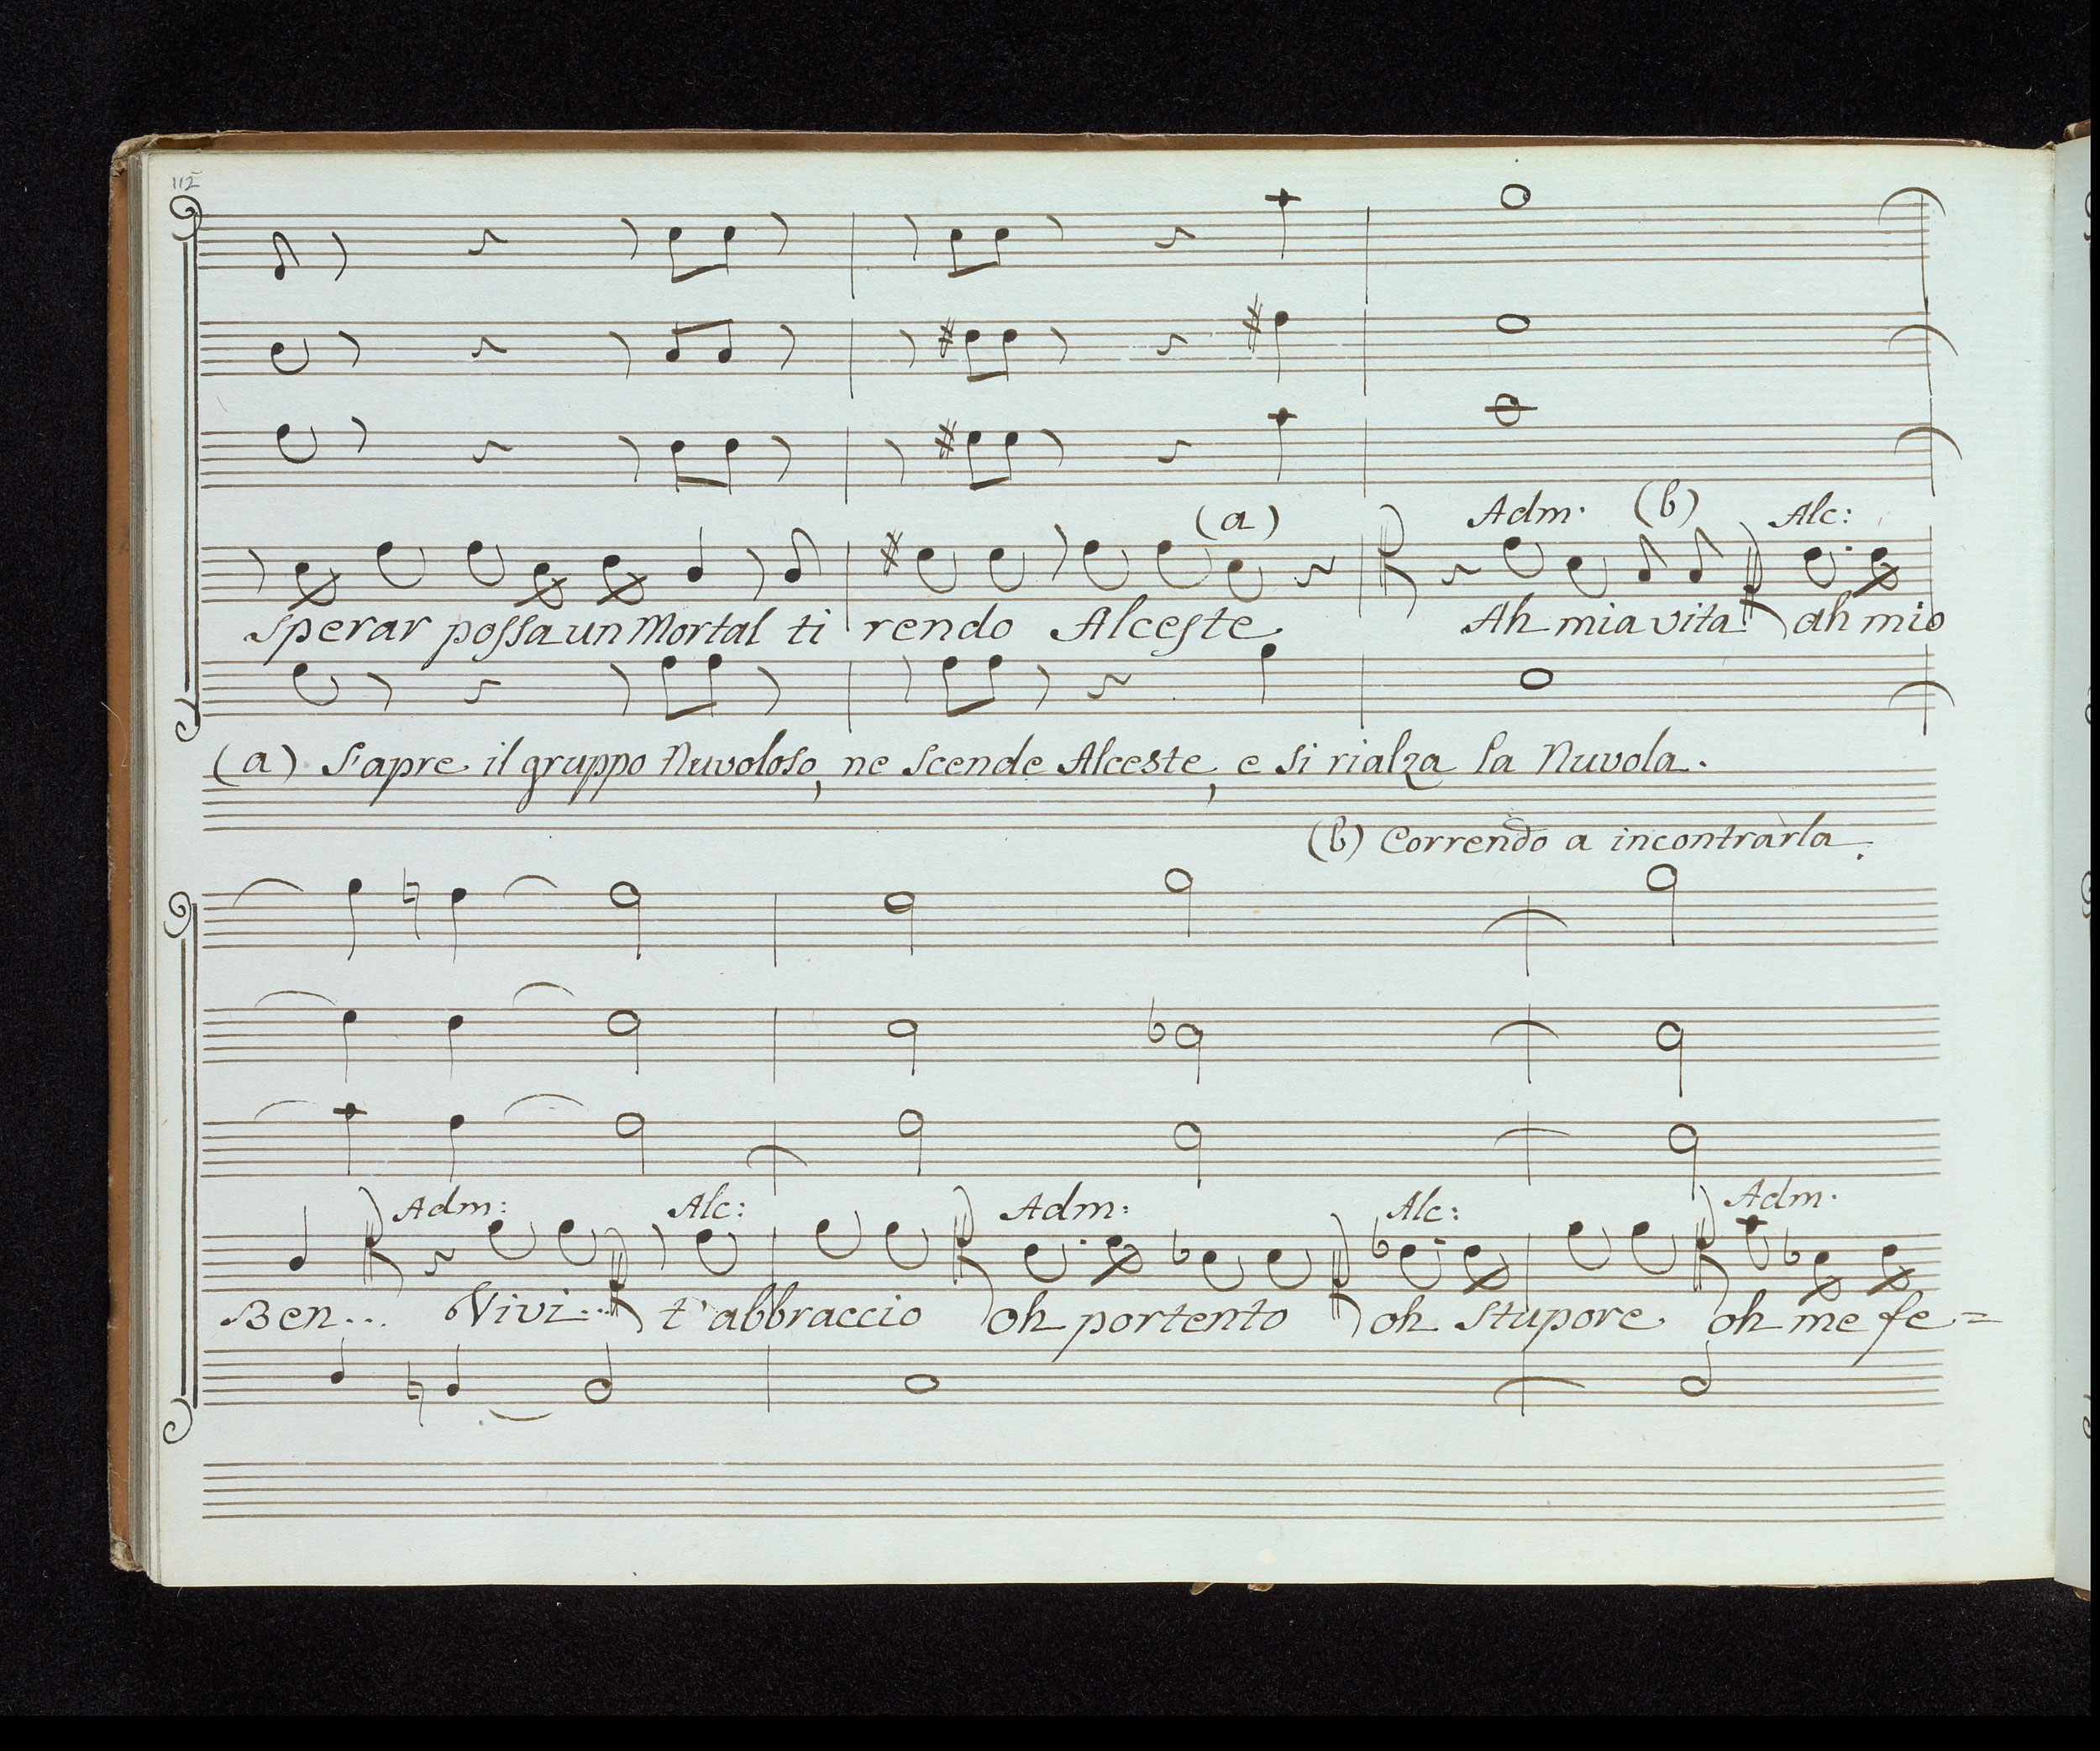 112
(a) Adm. (b) Alc:
Sperar possa un Mortal ti rendo Alceste Ah mia vita ah mio
(a) S'apre il gruppo Nuvoloso, ne scende Alceste, e si rialza la Nuvola.
(b) Correndo a incontrarla.
Adm: Alc: Adm: Alc: Adm.
Ben... Vivi... t'abbraccio oh portento oh stupore oh me fe=